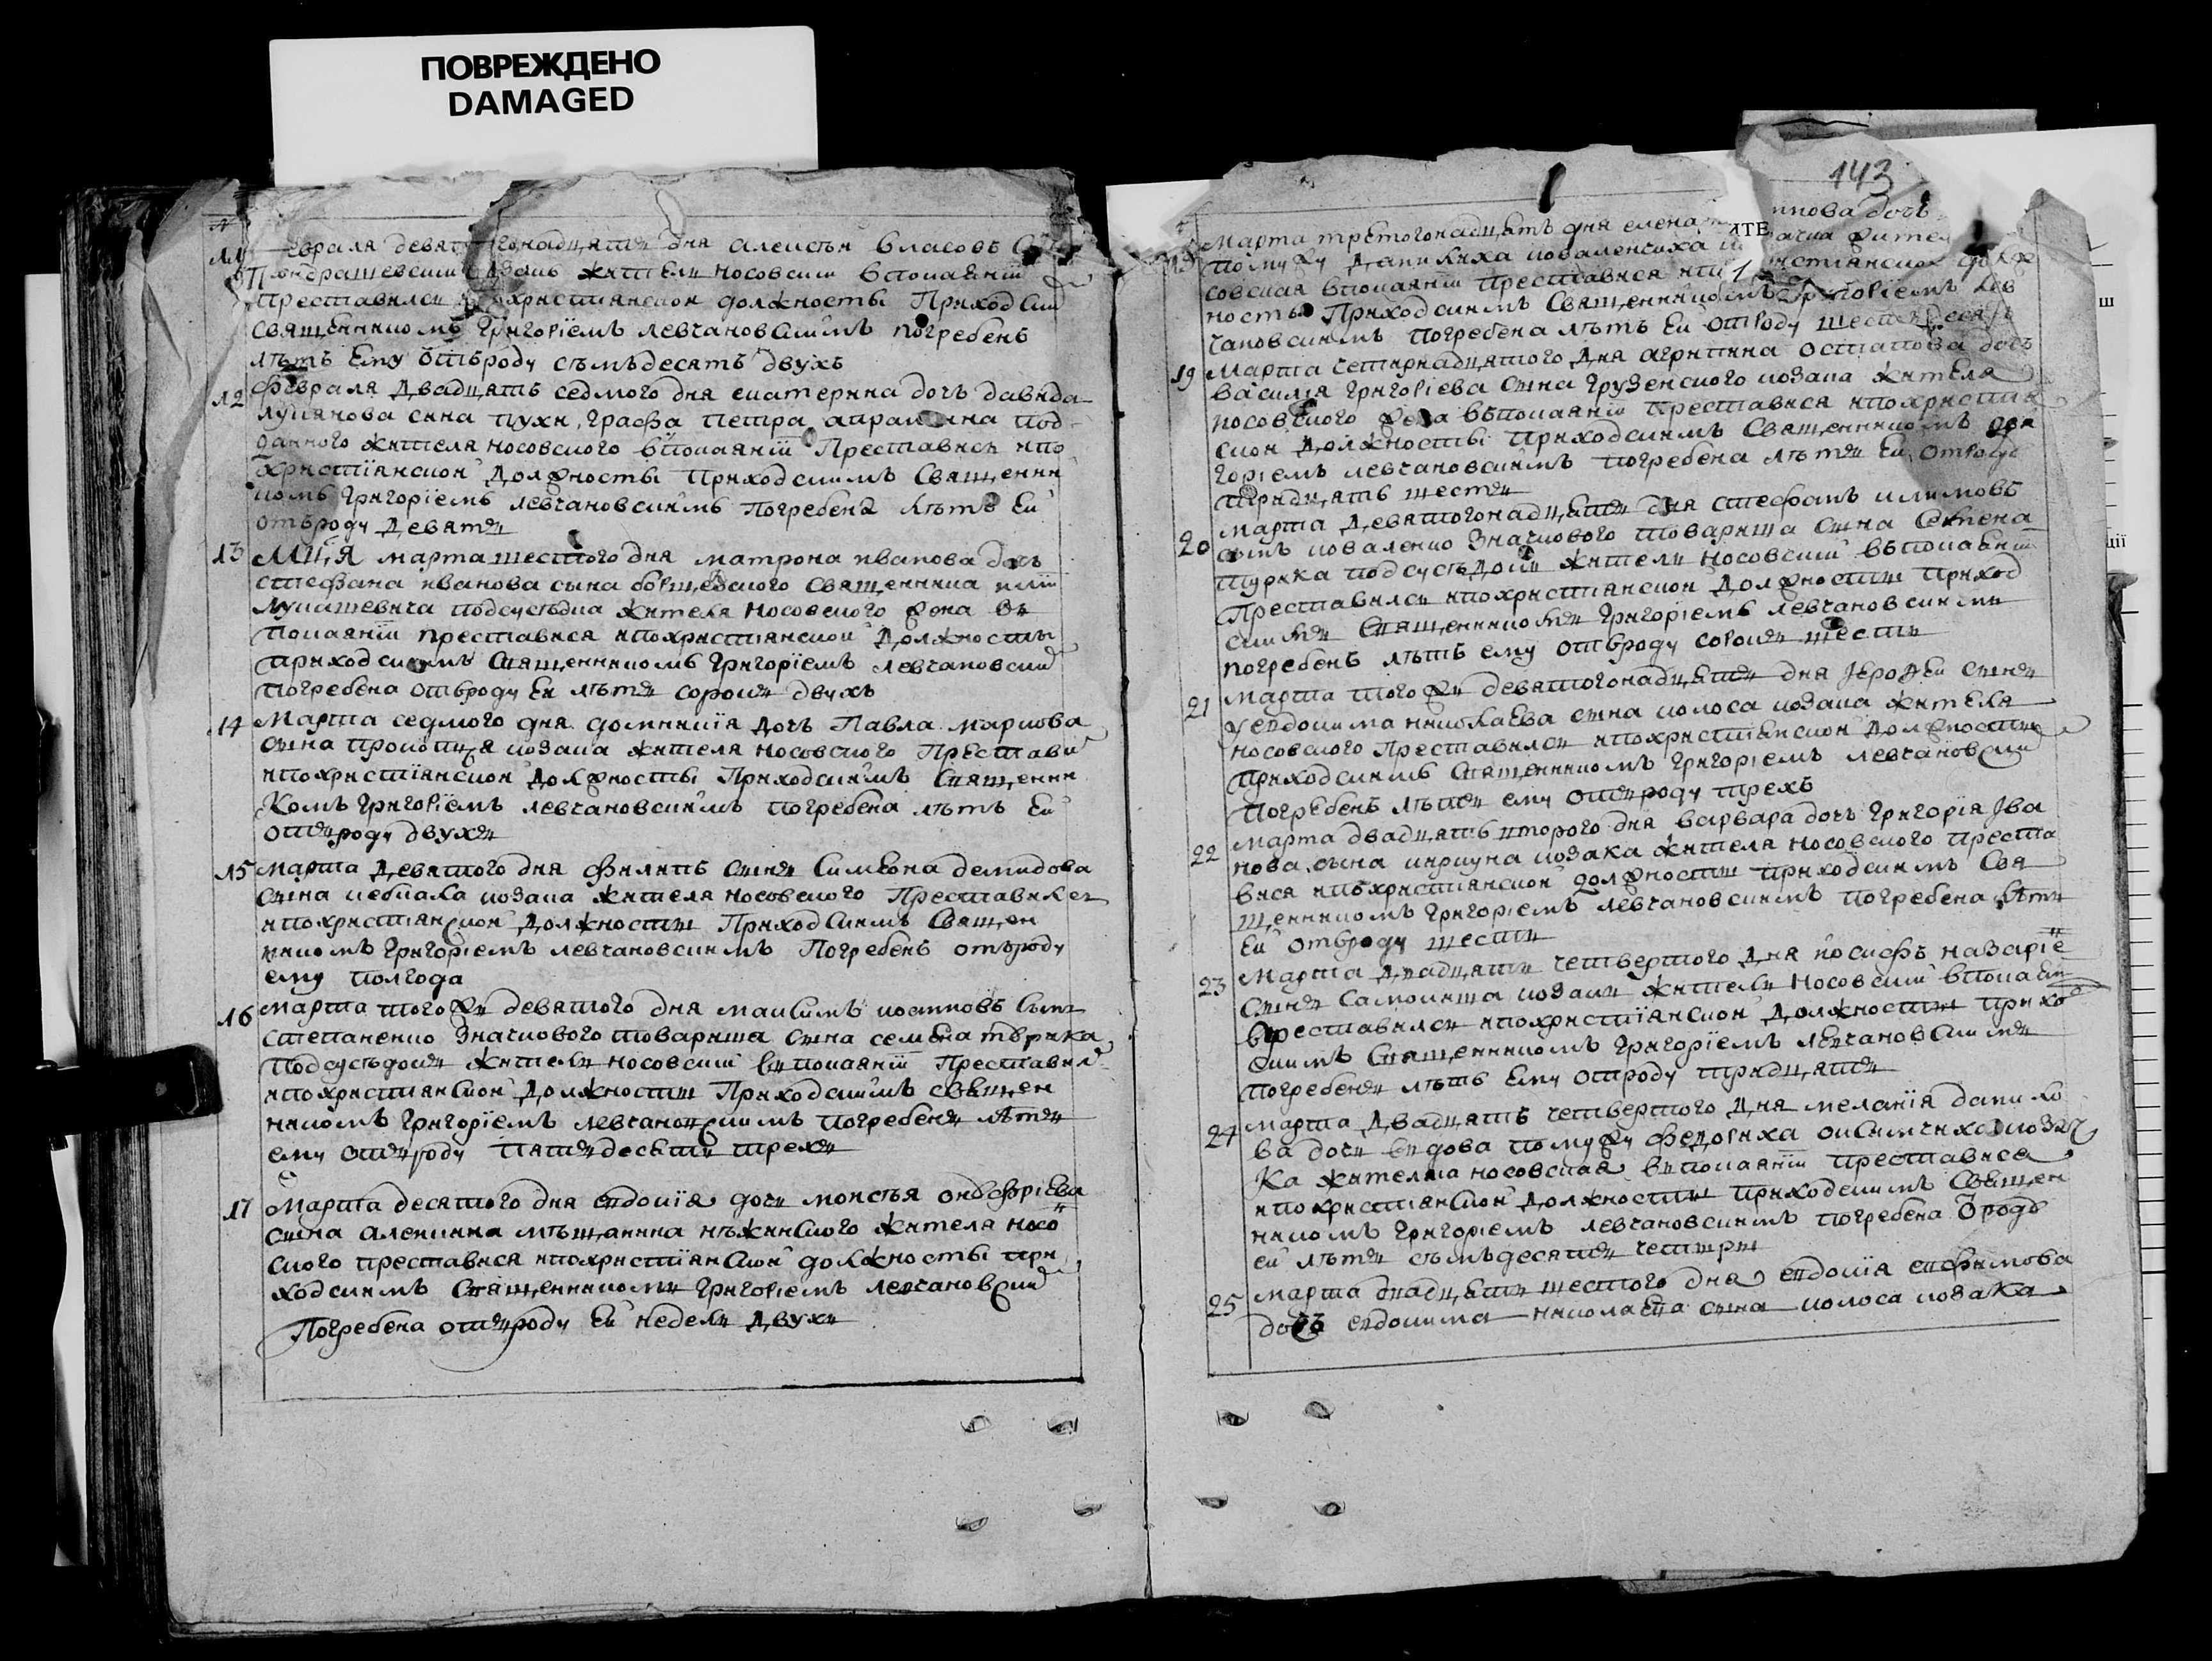 ПОВРЕЖДЕНО
DAMAGED
143
11 евраля девят гонадцять дня алеѯѣй власовъ
Кондрашевский козакъ житель носовский впокаянїи
преставился христианской должности Приходски
священникомъ Григорїемъ левчановскимъ погребенъ
лѣтъ ему отъроду съмъдесятъ двухъ
12 февраля двадцять седмого дня екатерина дочъ давида
лукянова сина пухи, графа петра апраксина под
данного жителя носовского впокаянїи Преставись ипо
христїянской должносты приходскимъ священни
комъ Григорїемъ левчановскимъ погребена лѣтъ ей
отъроду девять
13 Мця марта шестого дня матрона иванова дочь
стефана иванова сына священника илїи
Лукашевича подсусѣдка жителя носовского жона въ
покаянїи преставися ипохристиянской должносты
приходскимъ священникомъ Григорїемъ левчановски
погребена отъроду ей лѣтъ сорокъ двухъ
14 Марта седмого дня домникїя дочъ Павла маркова
сына прокопця козака жителя носовского Престави
ипохристїянской должносты Приходскимъ священни
комъ Григорїемъ левчановскимъ погребена лѣтъ ей
отъроду двухъ
15 марта девятого дня филипъ синъ Симеона демидова
сина козака жителя носовского Преставился
ипохристиянской должносты Приходскимъ священ
никомъ Григорїемъ левчановскимъ Погребенъ отъроду
ему полгода
16 марта того жъ девятого дня маѯимъ костовъ сынъ
степаненко значкового товариша сина семена турика
подсусѣдокъ житель носовский въ покаянїи Преставил
ипохристиянской должносты Приходскимъ священ
никомъ Григорїемъ левчановскимъ погребенъ лѣтъ
ему отъроду пятьдесятъ трехъ
17 Марта десятого дня евдокїя дочъ мойсѣя онофрїева
сина аленника мѣщанина нѣжинского жителя носо
ского преставися ипохристїянской должносты при
ходскимъ священникомъ Григорїемъ левчановски
Погребена отъроду ей недель двухъ
Марта третогонадцять дня елена ппова дочъ
помужу данилиха коваленчиха жител
совская впокаянїи преставися ипо християнской долж
ность Приходскимъ священникомъ Григорїемъ лев
чановскимъ погребена лѣтъ ей отроду шестьдесятъ
19 марта четирнадцятого дня агрипина остапова дочъ
василїя григорїева сина грузенского козака жителя
носовского жена въпокаянїи преставися ипохристия
ской должносты приходскимъ священникомъ гри
горїемъ левчановскимъ погребена лѣтъ ей отроду
тридцять шесть
20 марта девятогонадцять дня стефанъ климовъ
синъ коваленко значкового товариша сина семена
турика подсусѣдокъ житель носовский въпокаянїи
преставился ипохристиянской должности приход
скимъ священникомъ Григорїемъ левчановскимъ
погребенъ лѣтъ ему отъроду сорокъ шести
21 марта того жъ девятогонадцять дня Іеродей синъ
уевдокима николаева сина колоса козака жителя
носовского преставился ипохристїянской должности
приходскимъ священникомъ Григорїемъ левчановски
погребенъ лѣтъ ему отъроду трехъ
22 марта двадцять второго дня варвара дочъ григорїя Іва
нова сина киркуна козака жителя носовского преста
вися ипохристиянской должности приходскимъ свя
щенникомъ Григорїемъ левчановскимъ погребена лѣтъ
ей отъроду шести
23 марта двадцять четвертого дня иосифъ назарїе
синъ самокиша козакъ житель носовский впокаянїи
преставился ипохристїянской должности прихо
скимъ священникомъ Григорїемъ левчановскимъ
погребенъ лѣтъ ему отроду тридцять
24 марта двадцять четвертого дня меланїя данило
ва дочъ вдова помужу федориха козач
ка жителка носовская въпокаянїи преставися
ипохристиянской должности приходскимъ священ
никомъ Григорїемъ левчановскимъ погребена
ей лѣтъ съмъдесятъ четыри
25 марта двадцять шестого дня евдокїя ефимова
дочъ евдокима николаева сина колоса козака